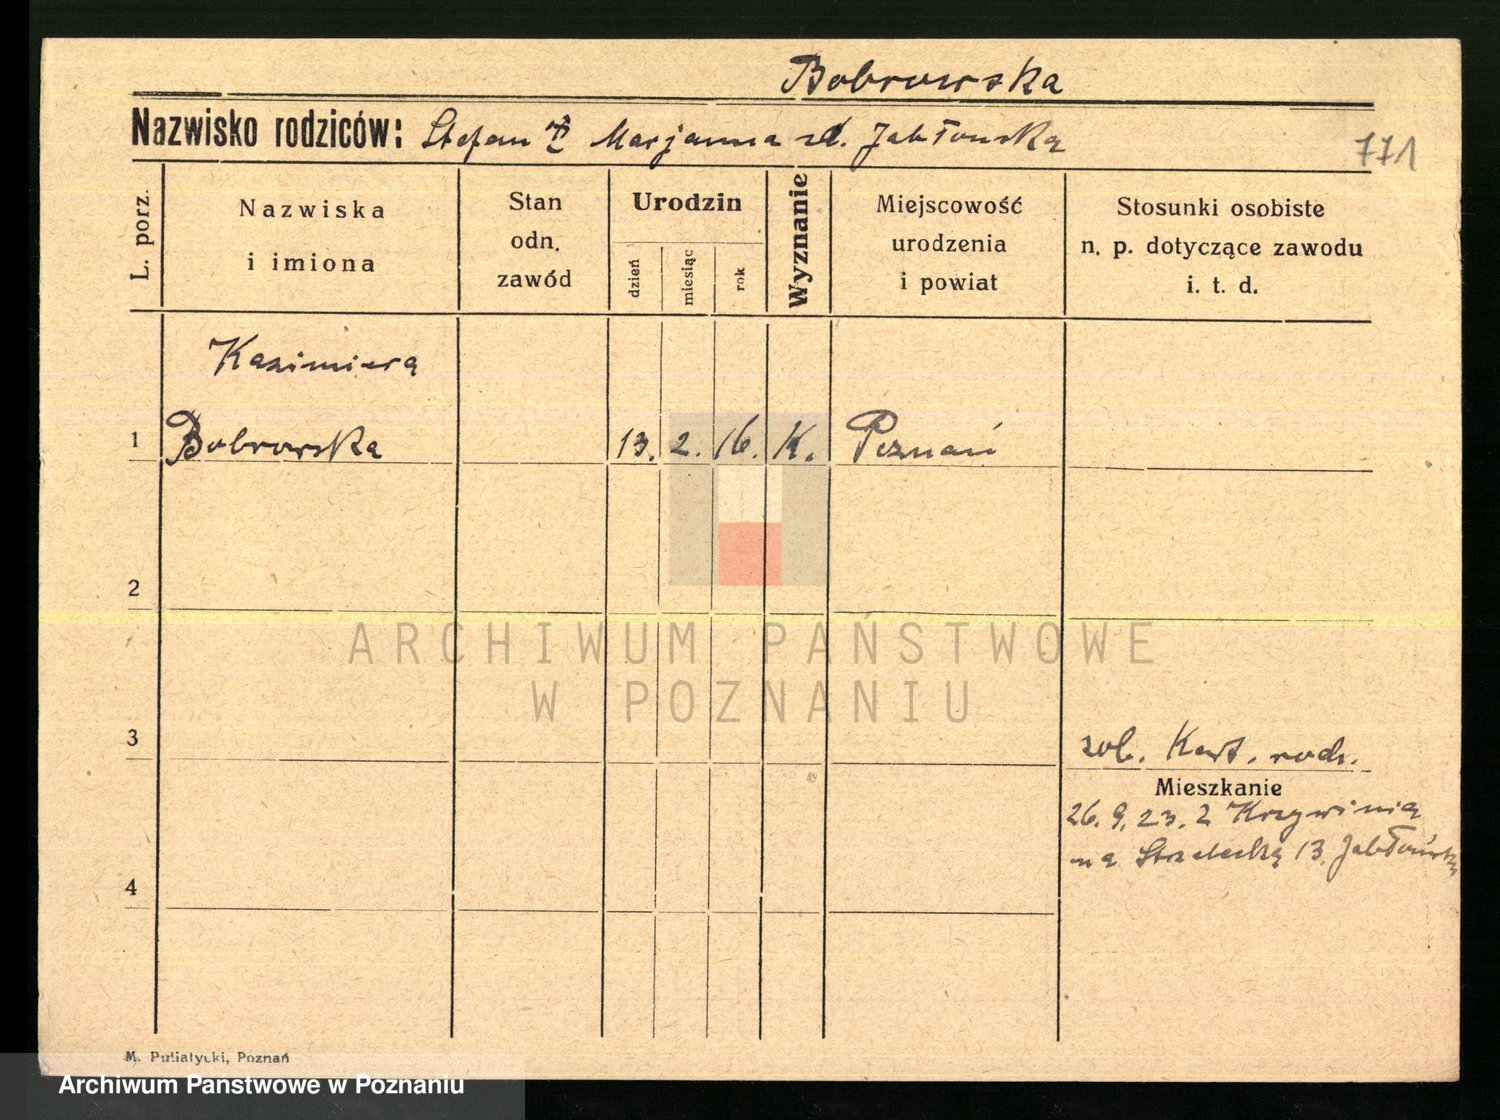 Bobrowska
Nazwisko rodziców: Stefan Marjanna zd. Jabłońska
771
L. porz.
Nazwiska
i imiona
Stan
odn.
zawód
Urodzin
dzień
miesiąc
rok
Wyznanie
Miejscowość
urodzenia
i powiat
Stosunki osobiste
n. p. dotyczące zawodu
i. t. d.
Kazimiera
1 Bobrowska 13. 2. 16. K. Poznań
2
ARCHIWUM PAŃSTWOWE
W POZNANIU
3
zob. Kart. rodz.
Mieszkanie
26. 9. 23. z Krzywinia
na Strzelecką 13. Jabłońska
4
M. Putiatycki, Poznań
Archiwum Państwowe w Poznaniu